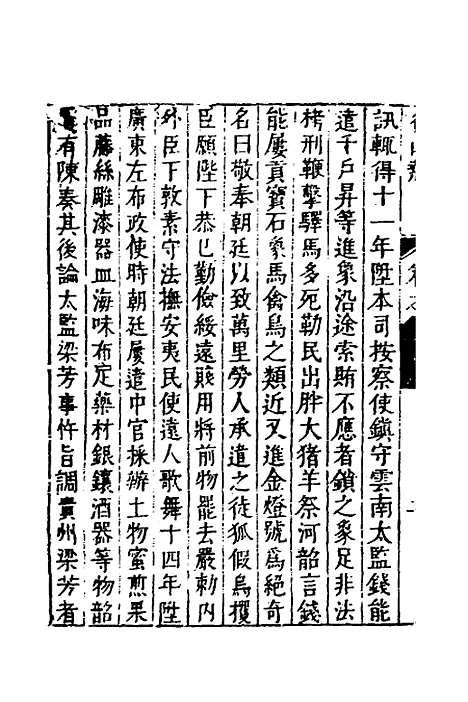 訊輒得十一年陞本司按察使鎮守雲南太監錢能
遣千戶昇等進象沿途索賄不應者鎖之象足非法
栲刑鞭擊驛馬多死勒民出胖大猪羊祭河韶言錢
能屢貢寶石象馬禽鳥之類近又進金燈號爲絕奇
名曰敬奉朝廷以致萬里勞人承遣之徒狐假鳥攫
臣願陛下恭巳勤儉綏遠賤用將前物罷去嚴勅內
外臣下敦素守法撫安夷民使遠人歌舞十四年陞
廣東左布政使時朝廷屢遣中官採辦土物蜜煎果
品藤絲雕漆器皿海味布疋藥材銀鑲酒器等物韶
有陳奏其後論太監梁芳事忤旨調貴州梁芳者